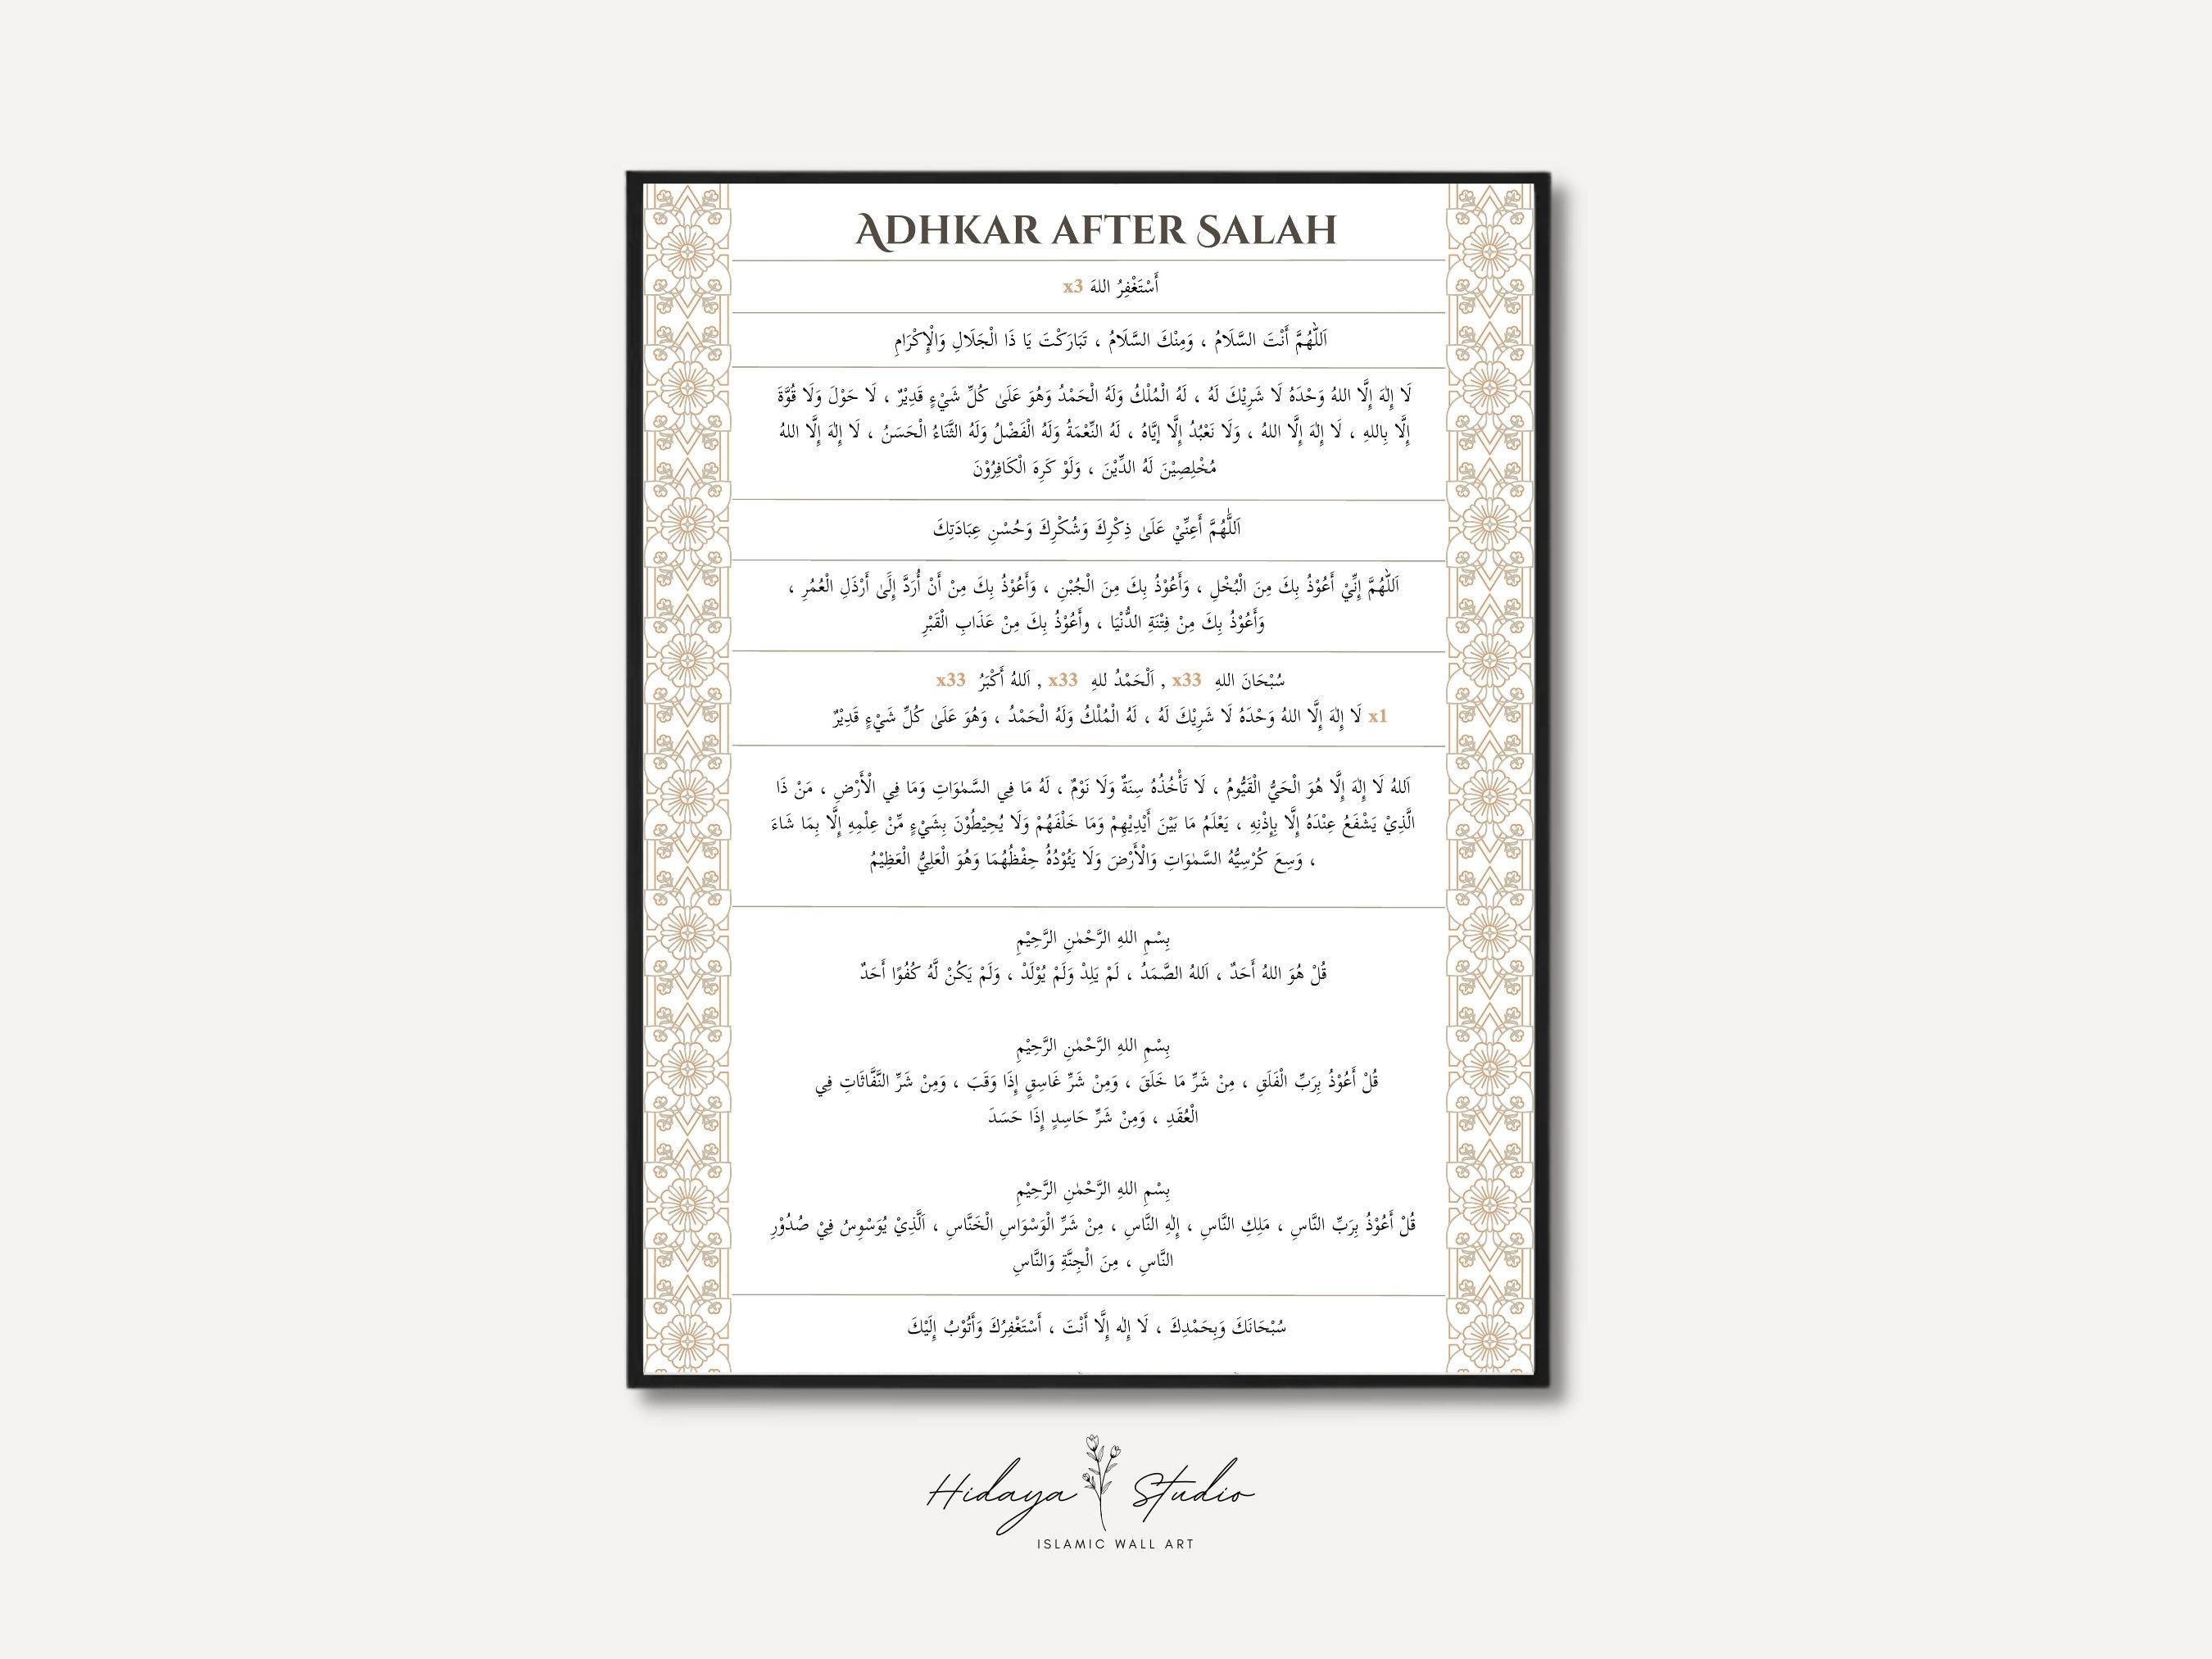 ADHKAR AFTER SALAH
أَسْتَغْفِرُ اللهَ x3
اَللّٰهُمَّ أَنْتَ السَّلَامُ ، وَمِنْكَ السَّلَامُ ، تَبَارَكْتَ يَا ذَا الْجَلَالِ وَالْإِكْرَامِ
لَا إِلٰهَ إِلَّا اللهُ وَحْدَهُ لَا شَرِيْكَ لَهُ ، لَهُ الْمُلْكُ وَلَهُ الْحَمْدُ وَهُوَ عَلَىٰ كُلِّ شَيْءٍ قَدِيْرٌ ، لَا حَوْلَ وَلَا قُوَّةَ
إِلَّا بِاللهِ ، لَا إِلٰهَ إِلَّا اللهُ ، وَلَا نَعْبُدُ إِلَّا إِيَّاهُ ، لَهُ النِّعْمَةُ وَلَهُ الْفَضْلُ وَلَهُ الثَّنَاءُ الْحَسَنُ ، لَا إِلٰهَ إِلَّا اللهُ
مُخْلِصِيْنَ لَهُ الدِّيْنَ ، وَلَوْ كَرِهَ الْكَافِرُوْنَ
اَللّٰهُمَّ أَعِنِّيْ عَلَىٰ ذِكْرِكَ وَشُكْرِكَ وَحُسْنِ عِبَادَتِكَ
اَللّٰهُمَّ إِنِّيْ أَعُوْذُ بِكَ مِنَ الْبُخْلِ ، وَأَعُوْذُ بِكَ مِنَ الْجُبْنِ ، وَأَعُوْذُ بِكَ مِنْ أَنْ أُرَدَّ إِلَىٰ أَرْذَلِ الْعُمُرِ ،
وَأَعُوْذُ بِكَ مِنْ فِتْنَةِ الدُّنْيَا ، وأَعُوْذُ بِكَ مِنْ عَذَابِ الْقَبْرِ
سُبْحَانَ اللهِ x33 , اَلْحَمْدُ للهِ x33 , اَللهُ أَكْبَرُ x33
x1 لَا إِلٰهَ إِلَّا اللهُ وَحْدَهُ لَا شَرِيْكَ لَهُ ، لَهُ الْمُلْكُ وَلَهُ الْحَمْدُ ، وَهُوَ عَلَىٰ كُلِّ شَيْءٍ قَدِيْرٌ
اَللهُ لَا إِلٰهَ إِلَّا هُوَ الْحَيُّ الْقَيُّومُ ، لَا تَأْخُذُهُ سِنَةٌ وَلَا نَوْمٌ ، لَهُ مَا فِي السَّمٰوَاتِ وَمَا فِي الْأَرْضِ ، مَنْ ذَا
الَّذِيْ يَشْفَعُ عِنْدَهُ إِلَّا بِإِذْنِهِ ، يَعْلَمُ مَا بَيْنَ أَيْدِيْهِمْ وَمَا خَلْفَهُمْ وَلَا يُحِيْطُوْنَ بِشَيْءٍ مِّنْ عِلْمِهِ إِلَّا بِمَا شَاءَ
، وَسِعَ كُرْسِيُّهُ السَّمٰوَاتِ وَالْأَرْضَ وَلَا يَئُوْدُهُ حِفْظُهُمَا وَهُوَ الْعَلِيُّ الْعَظِيْمُ
بِسْمِ اللهِ الرَّحْمٰنِ الرَّحِيْمِ
قُلْ هُوَ اللهُ أَحَدٌ ، اَللهُ الصَّمَدُ ، لَمْ يَلِدْ وَلَمْ يُوْلَدْ ، وَلَمْ يَكُنْ لَّهُ كُفُوًا أَحَدٌ
بِسْمِ اللهِ الرَّحْمٰنِ الرَّحِيْمِ
قُلْ أَعُوْذُ بِرَبِّ الْفَلَقِ ، مِنْ شَرِّ مَا خَلَقَ ، وَمِنْ شَرِّ غَاسِقٍ إِذَا وَقَبَ ، وَمِنْ شَرِّ النَّفَّاثَاتِ فِي
الْعُقَدِ ، وَمِنْ شَرِّ حَاسِدٍ إِذَا حَسَدَ
بِسْمِ اللهِ الرَّحْمٰنِ الرَّحِيْمِ
قُلْ أَعُوْذُ بِرَبِّ النَّاسِ ، مَلِكِ النَّاسِ ، إِلٰهِ النَّاسِ ، مِنْ شَرِّ الْوَسْوَاسِ الْخَنَّاسِ ، اَلَّذِيْ يُوَسْوِسُ فِيْ صُدُوْرِ
النَّاسِ ، مِنَ الْجِنَّةِ وَالنَّاسِ
سُبْحَانَكَ وَبِحَمْدِكَ ، لَا إِلٰه إِلَّا أَنْتَ ، أَسْتَغْفِرُكَ وَأَتُوْبُ إِلَيْكَ
Hidaya Studio
ISLAMIC WALL ART